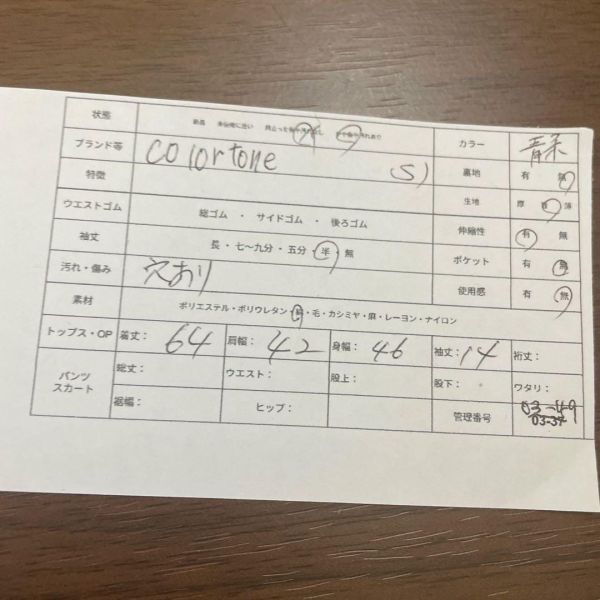 状態 新品 未使用に近い 目立った傷や汚れなし やや傷や汚れあり カラー 青系
ブランド等 colortone 裏地 有 無
特徴 (S) 生地 厚 普 薄
ウエストゴム 総ゴム ・ サイドゴム ・ 後ろゴム 伸縮性 有 無
袖丈 長・七〜九分・五分・半・無 ポケット 有 無
汚れ・傷み 穴あり 使用感 有 無
素材 ポリエステル・ポリウレタン・綿・毛・カシミヤ・麻・レーヨン・ナイロン
トップス・OP 着丈： 64 肩幅： 42 身幅： 46 袖丈： 14 裄丈：
パンツ 総丈： ウエスト： 股上： 股下： ワタリ：
スカート 裾幅： ヒップ： 管理番号 03-49
03-37